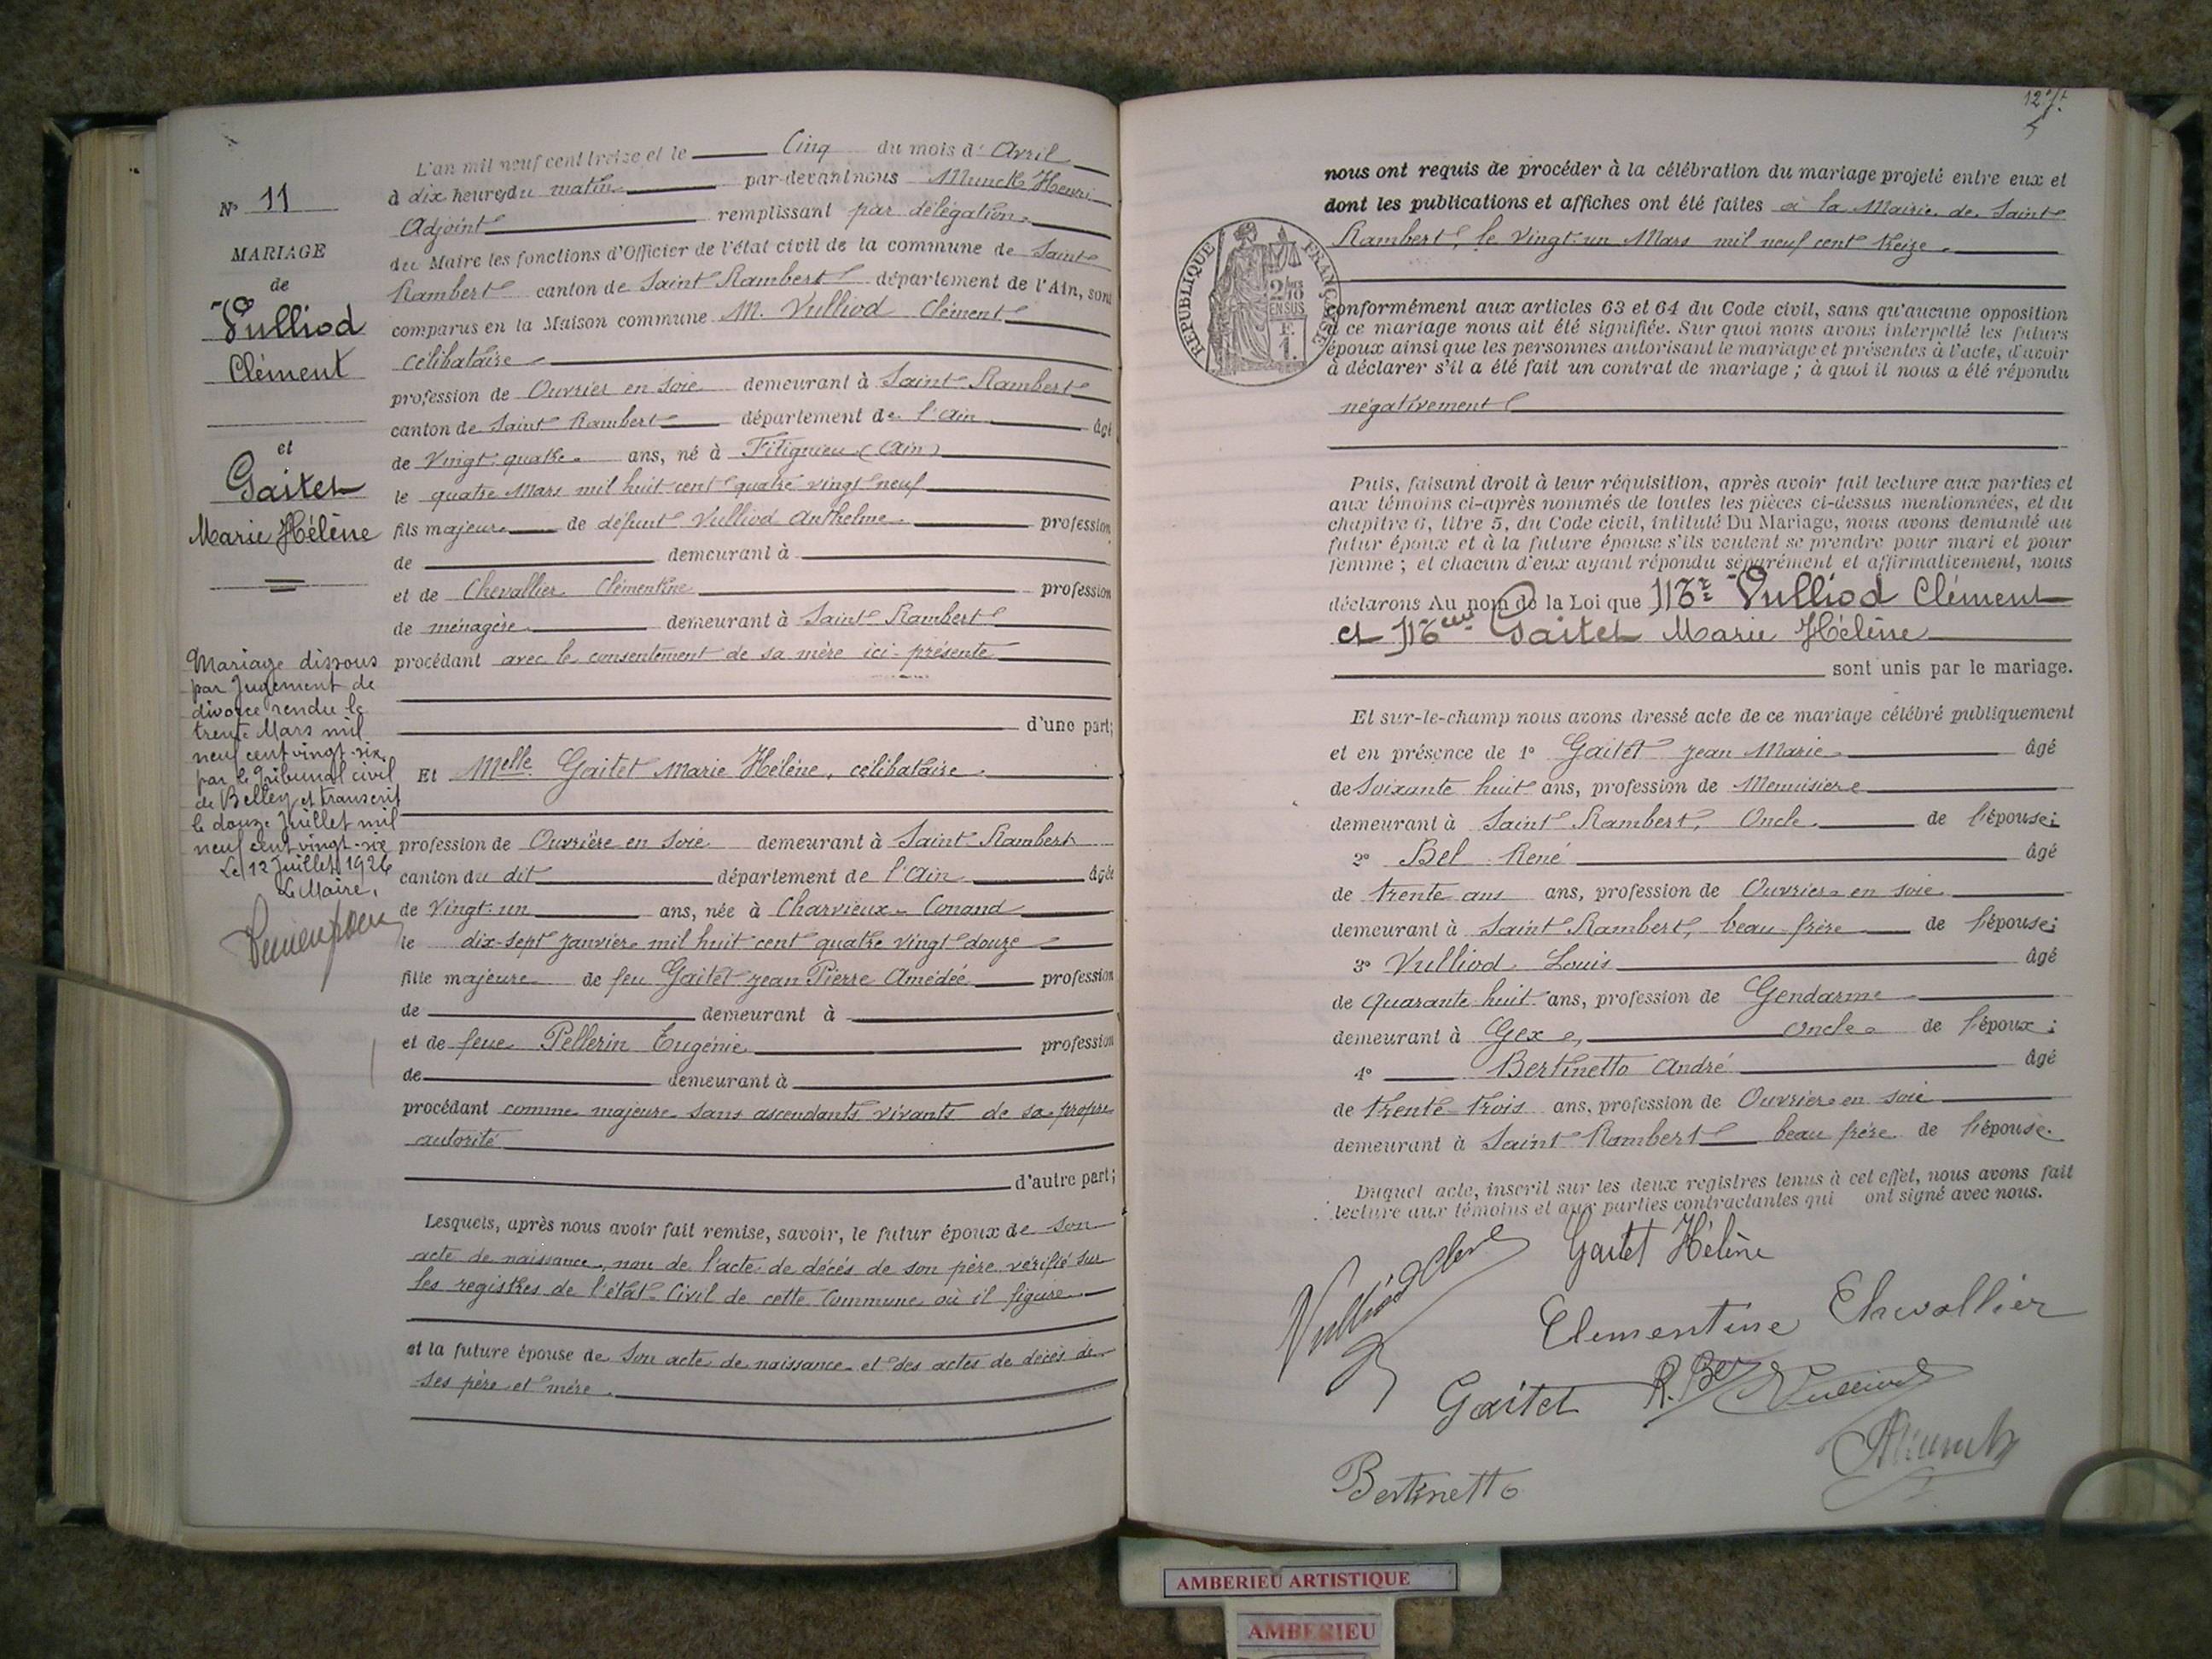 N° 11
MARIAGE
de
Vulliod
Clément
et
Gaitet
Marie Hélène
Mariage dissous
par Jugement de
divorce rendu le
trente Mars mil
neuf cent vingt-six
par le Tribunal civil
de Belley et transcrit
le douze Juillet mil
neuf cent vingt-six
Le 12 Juillet 1926
Le Maire,
L'an mil neuf cent treize et le Cinq du mois d'Avril
à dix heures du matin par-devant nous Munck Henri
Adjoint remplissant par délégation
du Maire les fonctions d'Officier de l'état civil de la commune de Saint
Rambert canton de Saint Rambert département de l'Ain, sont
comparus en la Maison commune M. Vulliod Clément
célibataire
profession de Ouvrier en soie demeurant à Saint Rambert
canton de Saint Rambert département de l'Ain âgé
de Vingt quatre ans, né à Fitignieu (Ain)
le quatre Mars mil huit cent quatre vingt neuf
fils majeur de défunt Vulliod Anthelme profession
de demeurant à
et de Chevallier Clémentine profession
de ménagère demeurant à Saint Rambert
procédant avec le consentement de sa mère ici présente
d'une part;
Et Melle Gaitet Marie Hélène, célibataire
profession de Ouvrière en soie demeurant à Saint Rambert
canton du dit département de l'Ain âgée
de Vingt un ans, née à Charvieux-Conand
le dix-sept Janvier mil huit cent quatre vingt douze
fille majeure de feu Gaitet Jean Pierre Amédée profession
de demeurant à
et de feue Pellerin Eugénie profession
de demeurant à
procédant comme majeure sans ascendants vivants de sa propre
autorité
d'autre part;
Lesquels, après nous avoir fait remise, savoir, le futur époux de son
acte de naissance, non de l'acte de décés de son père vérifié sur
les registres de l'état Civil de cette Commune où il figure
et la future épouse de Son acte de naissance et des actes de décès de
ses père et mère.
nous ont requis de procéder à la célébration du mariage projeté entre eux et
dont les publications et affiches ont été faites à la Mairie de Saint
Rambert, le vingt-un Mars mil neuf cent treize
REPUBLIQUE FRANÇAISE
2/10
EN SUS
F.
1.
conformément aux articles 63 et 64 du Code civil, sans qu'aucune opposition
à ce mariage nous ait été signifiée. Sur quoi nous avons interpellé les futurs
époux ainsi que les personnes autorisant le mariage et présentes à l'acte, d'avoir
à déclarer s'il a été fait un contrat de mariage ; à quoi il nous a été répondu
négativement
Puis, faisant droit à leur réquisition, après avoir fait lecture aux parties et
aux témoins ci-après nommés de toutes les pièces ci-dessus mentionnées, et du
chapitre 6, titre 5, du Code civil, intitulé Du Mariage, nous avons demandé au
futur époux et à la future épouse s'ils veulent se prendre pour mari et pour
femme ; et chacun d'eux ayant répondu séparément et affirmativement, nous
déclarons Au nom de la Loi que Mr Vulliod Clément
et Melle Gaitet Marie Hélène
sont unis par le mariage.
Et sur-le-champ nous avons dressé acte de ce mariage célébré publiquement
et en présence de 1° Gaitet Jean Marie âgé
de Soixante huit ans, profession de Menuisier
demeurant à Saint Rambert, Oncle de l'épouse;
2° Bel René âgé
de trente ans ans, profession de Ouvrier en soie
demeurant à Saint Rambert, beau-frère de l'épouse;
3° Vulliod Louis âgé
de quarante huit ans, profession de Gendarme
demeurant à Gex, oncle de l'époux;
4° Bertinetto André âgé
de trente trois ans, profession de Ouvrier en soie
demeurant à Saint Rambert beau frère de l'épouse.
Duquel acte, inscrit sur les deux registres tenus à cet effet, nous avons fait
lecture aux témoins et aux parties contractantes qui ont signé avec nous.
Gaitet Hélène
Clementine Chevallier
Gaitet R. Bel
Bertinetto
AMBERIEU ARTISTIQUE
AMBERIEU